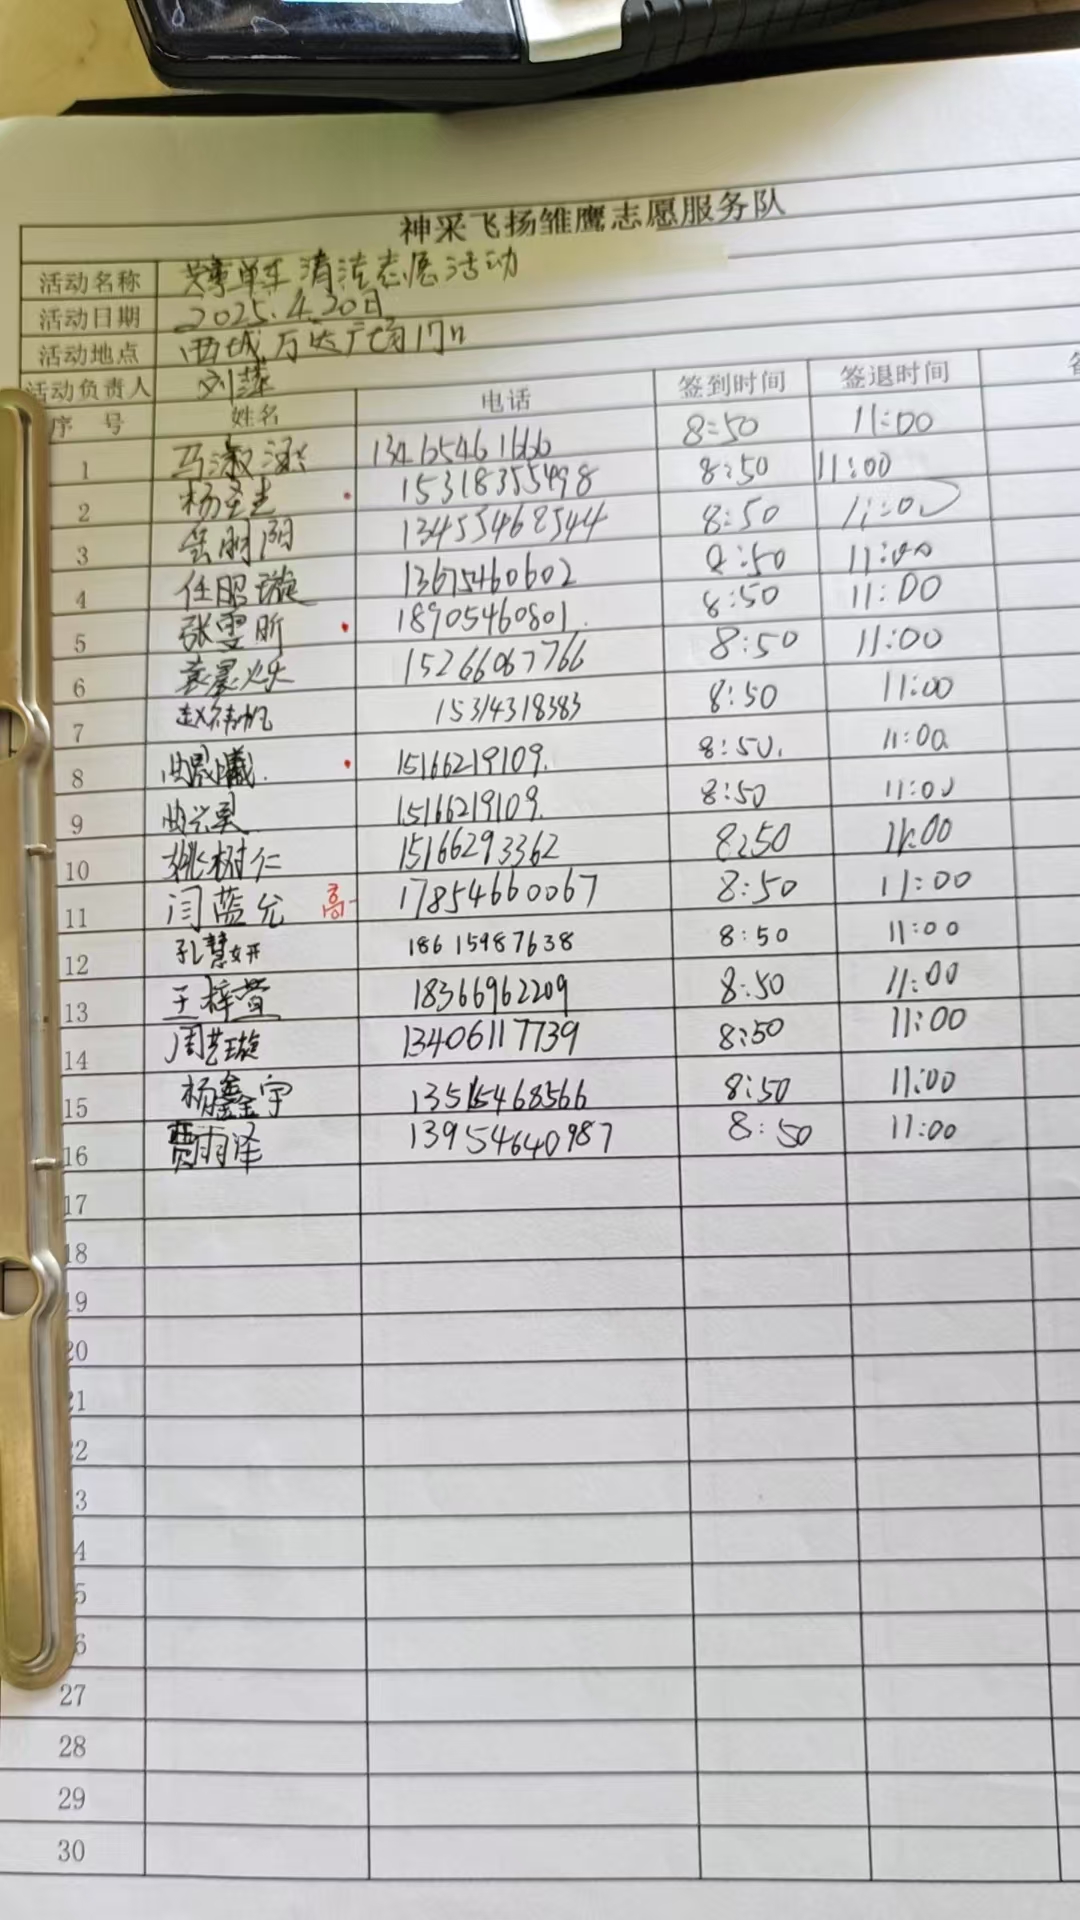 神采飞扬雏鹰志愿服务队
活动名称 共享单车清洁志愿活动
活动日期 2025.4.20日
活动地点 西城万达广场门口
活动负责人 刘萍
序号 姓名 电话 签到时间 签退时间
1 马淑涵 13465461666 8:50 11:00
2 杨 15318355498 8:50 11:00
3 岳明阳 13455468544 8:50 11:00
4 任昭璇 13675460602 8:50 11:00
5 张雯昕 18905460801. 8:50 11:00
6 袁晨烁 15266067766 8:50 11:00
7 赵祎帆 15314318383 8:50 11:00
8 曲晟曦. 15166219109. 8:50. 11:00
9 曲兴昊 15166219109. 8:50 11:00
10 姚树仁 15166293362 8:50 11:00
11 闫蓝允 高一 17854660067 8:50 11:00
12 孔慧妍 18615987638 8:50 11:00
13 王梓萱 18366962209 8:50 11:00
14 周艺璇 13406117739 8:50 11:00
15 杨鑫宇 13515468566 8:50 11:00
16 贾雨泽 13954640987 8:50 11:00
17
18
19
20
21
22
3
4
5
6
27
28
29
30